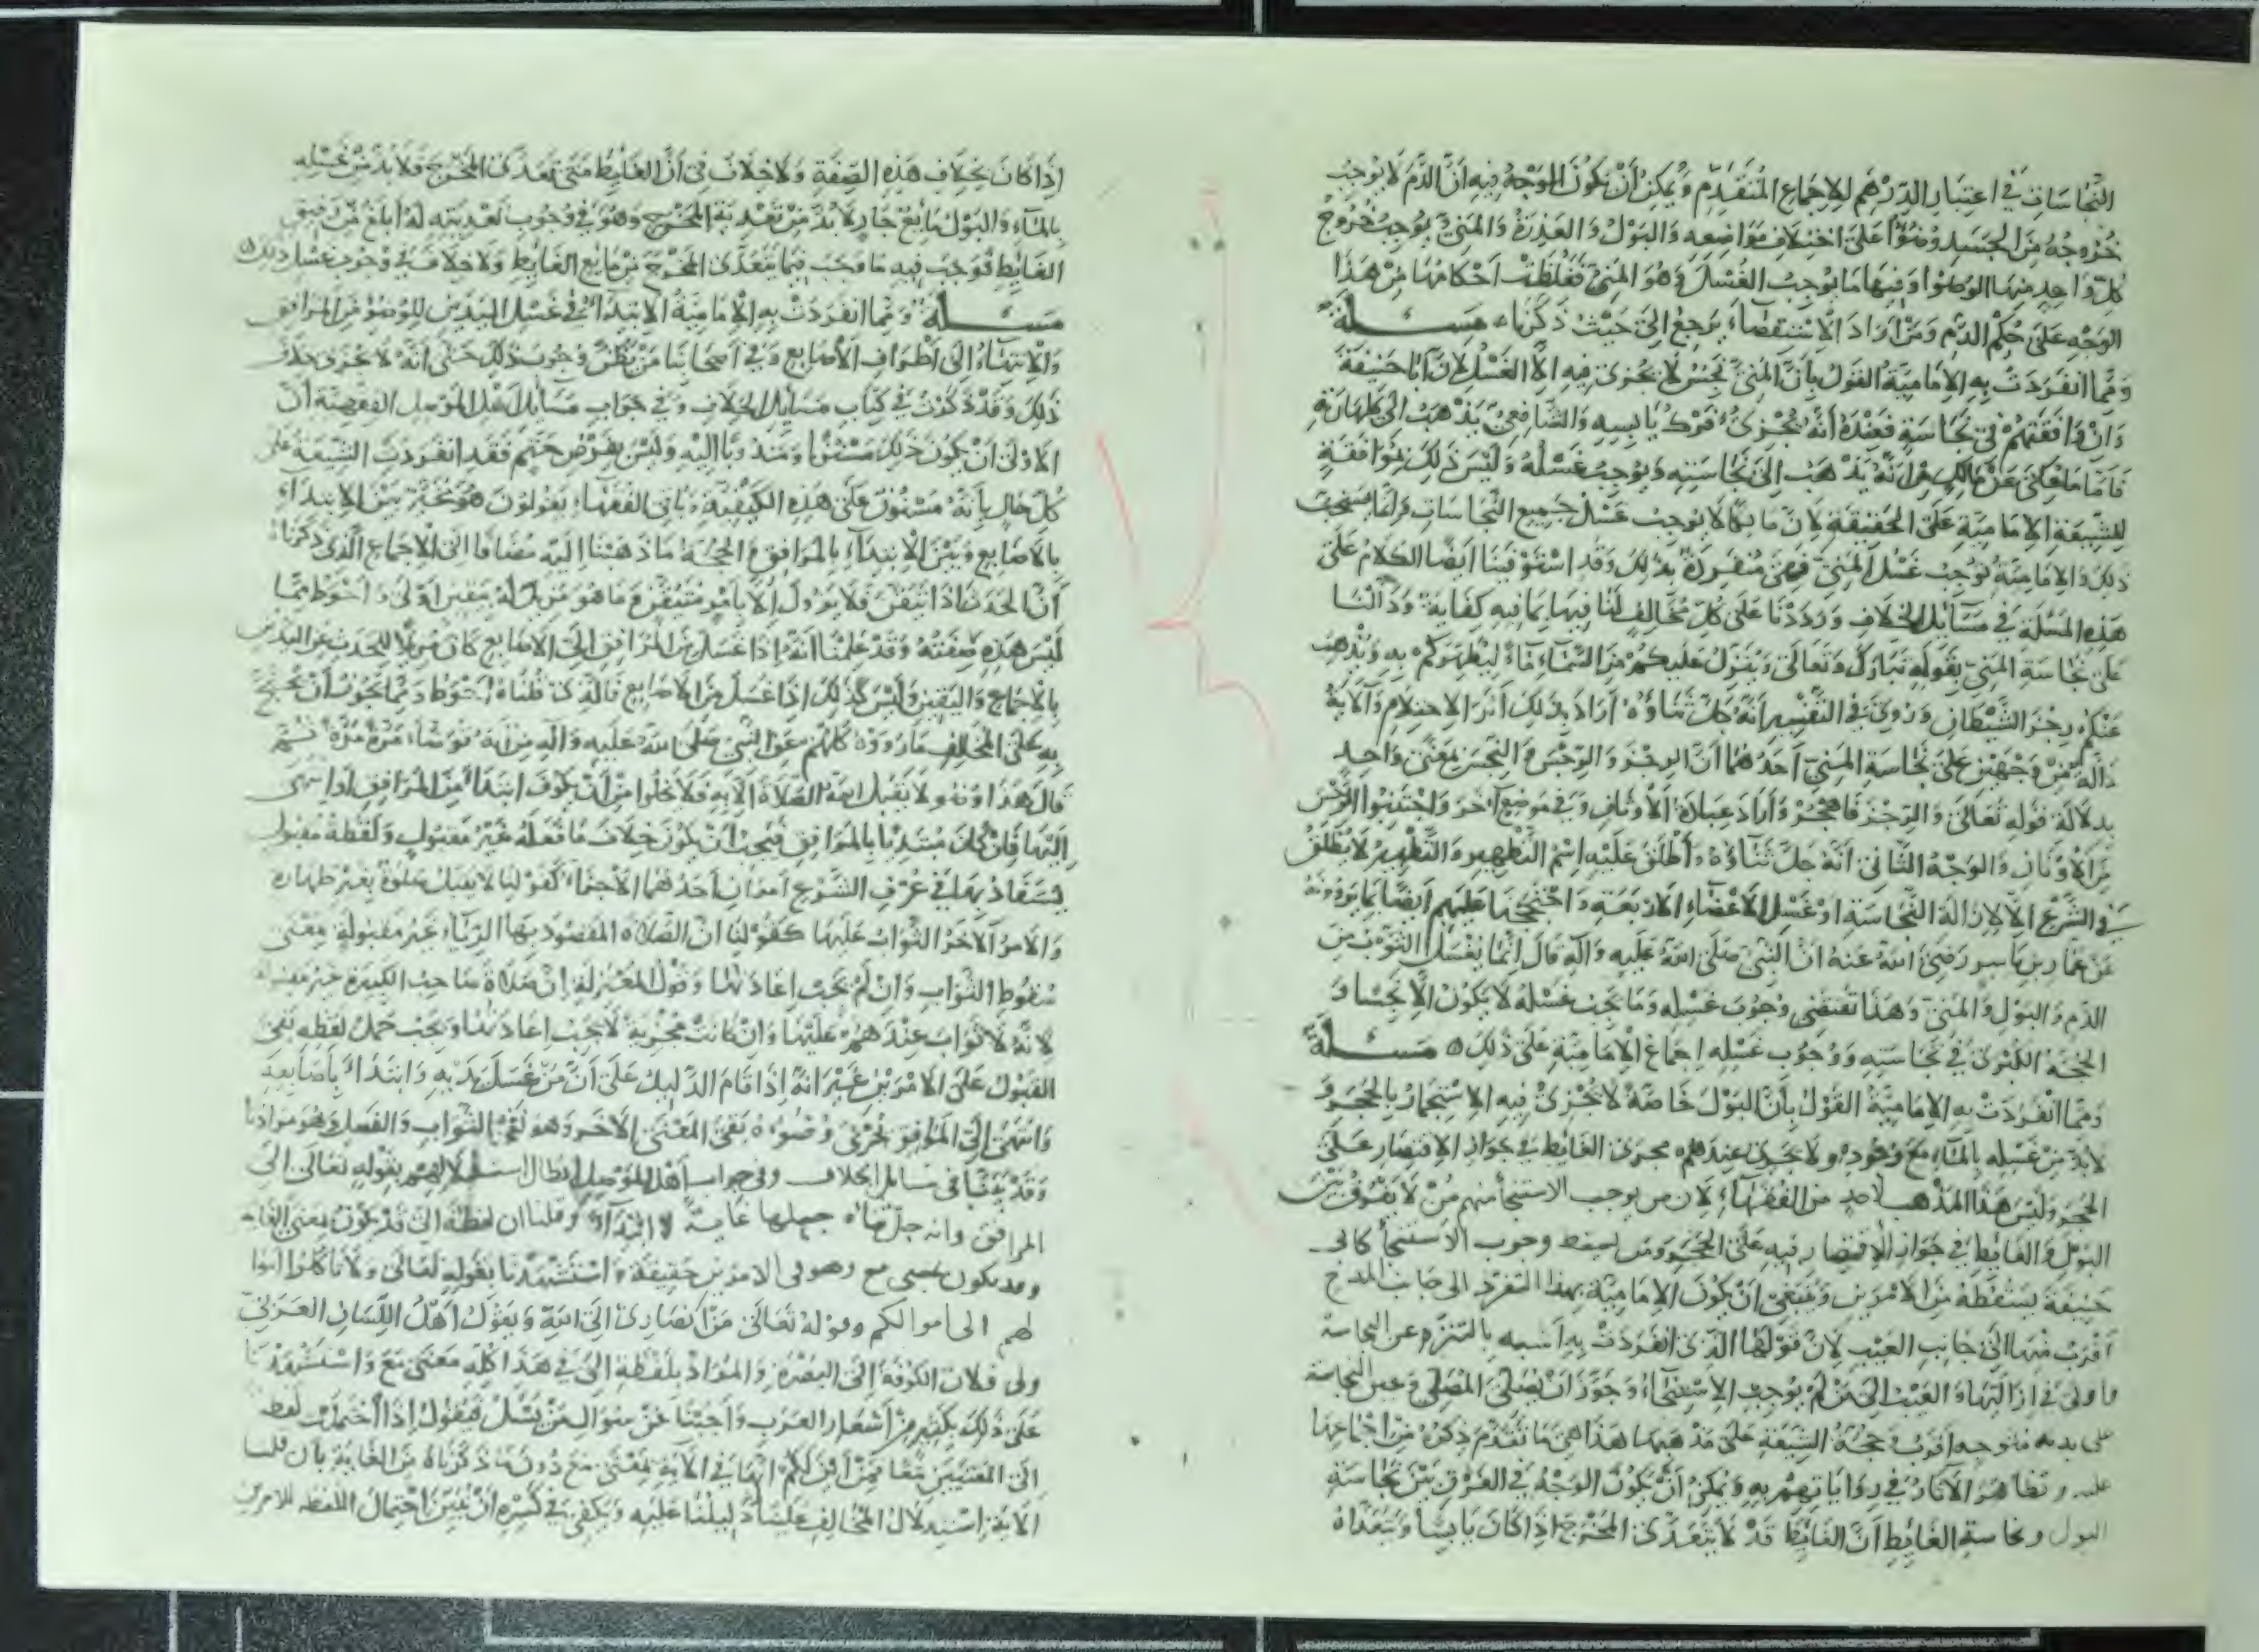 النجاسات في اعتبار الدرهم للاجماع المتقدم ويمكن ان يكون الوجه فيه ان الدم لا يوجب
خروجه من الجسد وضوءا على اختلاف مواضعه والبول والعذرة والمني يوجب خروج
كل واحد منها الوضوء وفيها ما يوجب الغسل وهو المني فغلظت احكامها من هذا
الوجه على حكم الدم ومن اراد الاستقصاء يرجع الى حيث ذكرناه مسئلة
ومما انفردت به الامامية القول بان المني نجس لا يجزئ فيه الا الغسل لان ابا حنيفة
وان وافقهم في نجاسة فعنده انه يجزئ فرك يابسه والشافعي يذهب الى طهارته
فاما ما حكى عن مالك من انه يذهب الى نجاسته ويوجب غسله وليس ذلك بموافقة
للشيعة الامامية على الحقيقة لان مالكا لا يوجب غسل جميع النجاسات وانما يستحب
ذلك والامامية توجب غسل المني فهي منفردة بذلك وقد استوفينا ايضا الكلام على
هذه المسئلة في مسائل الخلاف ورددنا على كل مخالف لنا فيها بما فيه كفاية ودللنا
على نجاسة المني بقوله تبارك وتعالى وينزل عليكم من السماء ماء ليطهركم به ويذهب
عنكم رجز الشيطان وروي في التفسير انه جل ثناؤه اراد بذلك اثر الاحتلام والاية
دالة من وجهين على نجاسة المني احدهما ان الرجز والرجس والنجس بمعنى واحد
بدلالة قوله تعالى والرجز فاهجر واراد عبادة الاوثان وفي موضع اخر واجتنبوا الرجس
من الاوثان والوجه الثاني انه جل ثناؤه اطلق عليه اسم التطهير والتطهير لا يطلق
في الشرع الا لازالة النجاسة او غسل الاعضاء الاربعة واحتججنا عليهم ايضا بما يروونه
عن عمار بن ياسر رضي الله عنه ان النبي صلى الله عليه واله قال انما يغسل الثوب من
الدم والبول والمني وهذا تقتضي وجوب غسله وما يجب غسله لا يكون الا نجسا و
الحجة الكبرى في نجاسته ووجوب غسله اجماع الامامية على ذلك مسئلة
ومما انفردت به الامامية القول بان البول خاصة لا يجزئ فيه الاستجمار بالحجر و
لا بد من غسله بالماء مع وجوده ولا يجري عندهم مجرى الغائط في جواز الاقتصار على
الحجر وليس هذا المذهب لاحد من الفقهاء لان من يوجب الاستنجا منهم من لا يفرق بين
البول والغائط في جواز الاقتصار فيه على الحجر ومن يسقط وجوب الاستنجا كابى
حنيفة يسقطه من الامرين وينبغي ان يكون الامامية بهذا التفرد الى جانب المدح
اقرب منها الى جانب العيب لان قولها الذي انفردت به اشبه بالتنزه عن النجاسة
واولى في ازالتها والعيب الى من لم يوجب الاستنجاء وجوز ان يصلي المصلي وعين النجاسة
على بدنه متوجه اقرب وحجة الشيعة على مذهبها هذا هي ما تقدم ذكره من اجماعها
عليه وتظاهر الآثار في رواياتهم به ويمكن ان يكون الوجه في الفرق بين نجاسة
البول ونجاسة الغائط ان الغائط قد لا يتعدى المخرج اذا كان يابسا ويتعداه
اذا كان بخلاف هذه الصفة ولا خلاف في ان الغائط متى تعدى المخرج فلا بد من غسله
بالماء والبول مائع جار لا بد من تعديه المخرج وهو في وجوب تعديته له ابلغ من رقيق
الغائط فوجب فيه ما وجب فيما يتعدى المخرج من مائع الغائط ولا خلاف في وجوب غسل ذلك
مسئلة ومما انفردت به الامامية الابتداء في غسل اليدين للوضوء من المرافق
والانتهاء الى اطراف الاصابع وفي اصحابنا من يظن وجوب ذلك حتى انه لا يجزئ خلاف
ذلك وقد ذكرت في كتاب مسائل الخلاف وفي جواب مسائل اهل الموصل الفقهية ان
الاولى ان يكون ذلك مسنونا ومندوبا اليه وليس بفرض حتم فقد انفردت الشيعة على
كل حال بانه مسنون على هذه الكيفية وباقي الفقهاء يقولون هو مخير بين الابتداء
بالاصابع وبين الابتداء بالمرافق والحجة ما ذهبنا اليه مضافا الى الاجماع الذي ذكرناه
ان الحدث اذا تيقن فلا يزول الا بامر متيقن وما هو مزيل له بيقين اولى واحوط مما
ليس هذه صفته وقد علمنا انه اذا غسل من المرافق الى الاصابع كان مزيلا للحدث عن اليدين
بالاجماع واليقين وليس كذلك اذا غسل من الاصابع فالذي قلناه احوط ومما يجوز ان يحتج
به على المخالف ما رووه كلهم عن النبي صلى الله عليه واله من انه توضأ مرة مرة ثم
قال هذا وضوء لا يقبل الله الصلاة الا به فلا يخلوا من ان يكون ابتدأ من المرافق او انتهى
اليها فان كان مبتديا بالمرافق فيجب ان يكون خلاف ما فعله غير مقبول ولفظة مقبول
يستفاد بها في عرف الشرع امران احدهما الاجزاء كقولنا لا يقبل صلوة بغير طهارة
والامر الاخر الثواب عليها كقولنا ان الصلاة المقصود بها الرياء غير مقبولة بمعنى
سقوط الثواب وان لم يجب اعادتها وقول المعتزلة ان صلاة صاحب الكبيرة غير مقبولة
لانه لا ثواب عندهم عليها وان كانت مجزية لا يجب اعادتها ويجب حمل لفظه نفي
القبول على الامرين غير انه اذا قام الدليل على ان من غسل يديه وابتدأ باصابعه
وانتهى الى المرافق يجزئ وضوءه بقي المعنى الاخر وهو نفي الثواب والفضل وهو مرادنا
وقد بينا في مسائل الخلاف وفي جواب اهل الموصل ابطال استدلالهم بقوله تعالى الى
المرافق وانه جل ثناؤه جعلها غاية لا ابتداء وقلنا ان لفظة الى قد تكون بمعنى الغاية
وقد تكون بمعنى مع وهو في الامرين حقيقة واستشهدنا بقوله تعالى ولا تاكلوا اموا
لهم الى اموالكم وقوله تعالى من انصاري الى الله ويقول اهل اللسان العربي
ولى فلان الكوفة الى البصرة والمراد بلفظة الى في هذا كله معنى مع واستشهدنا
على ذلك بكثير من اشعار العرب واجبنا عن سوال من يسئل فيقول اذا احتملت لفظة
الى المعنيين معا فمن اين لكم انها في الآية بمعنى مع دون ما ذكرناه من الغاية بان قلنا
الآية استدلال المخالف علينا دليلنا عليه ويكفي في كسره ان نبين احتمال اللفظه للامرين